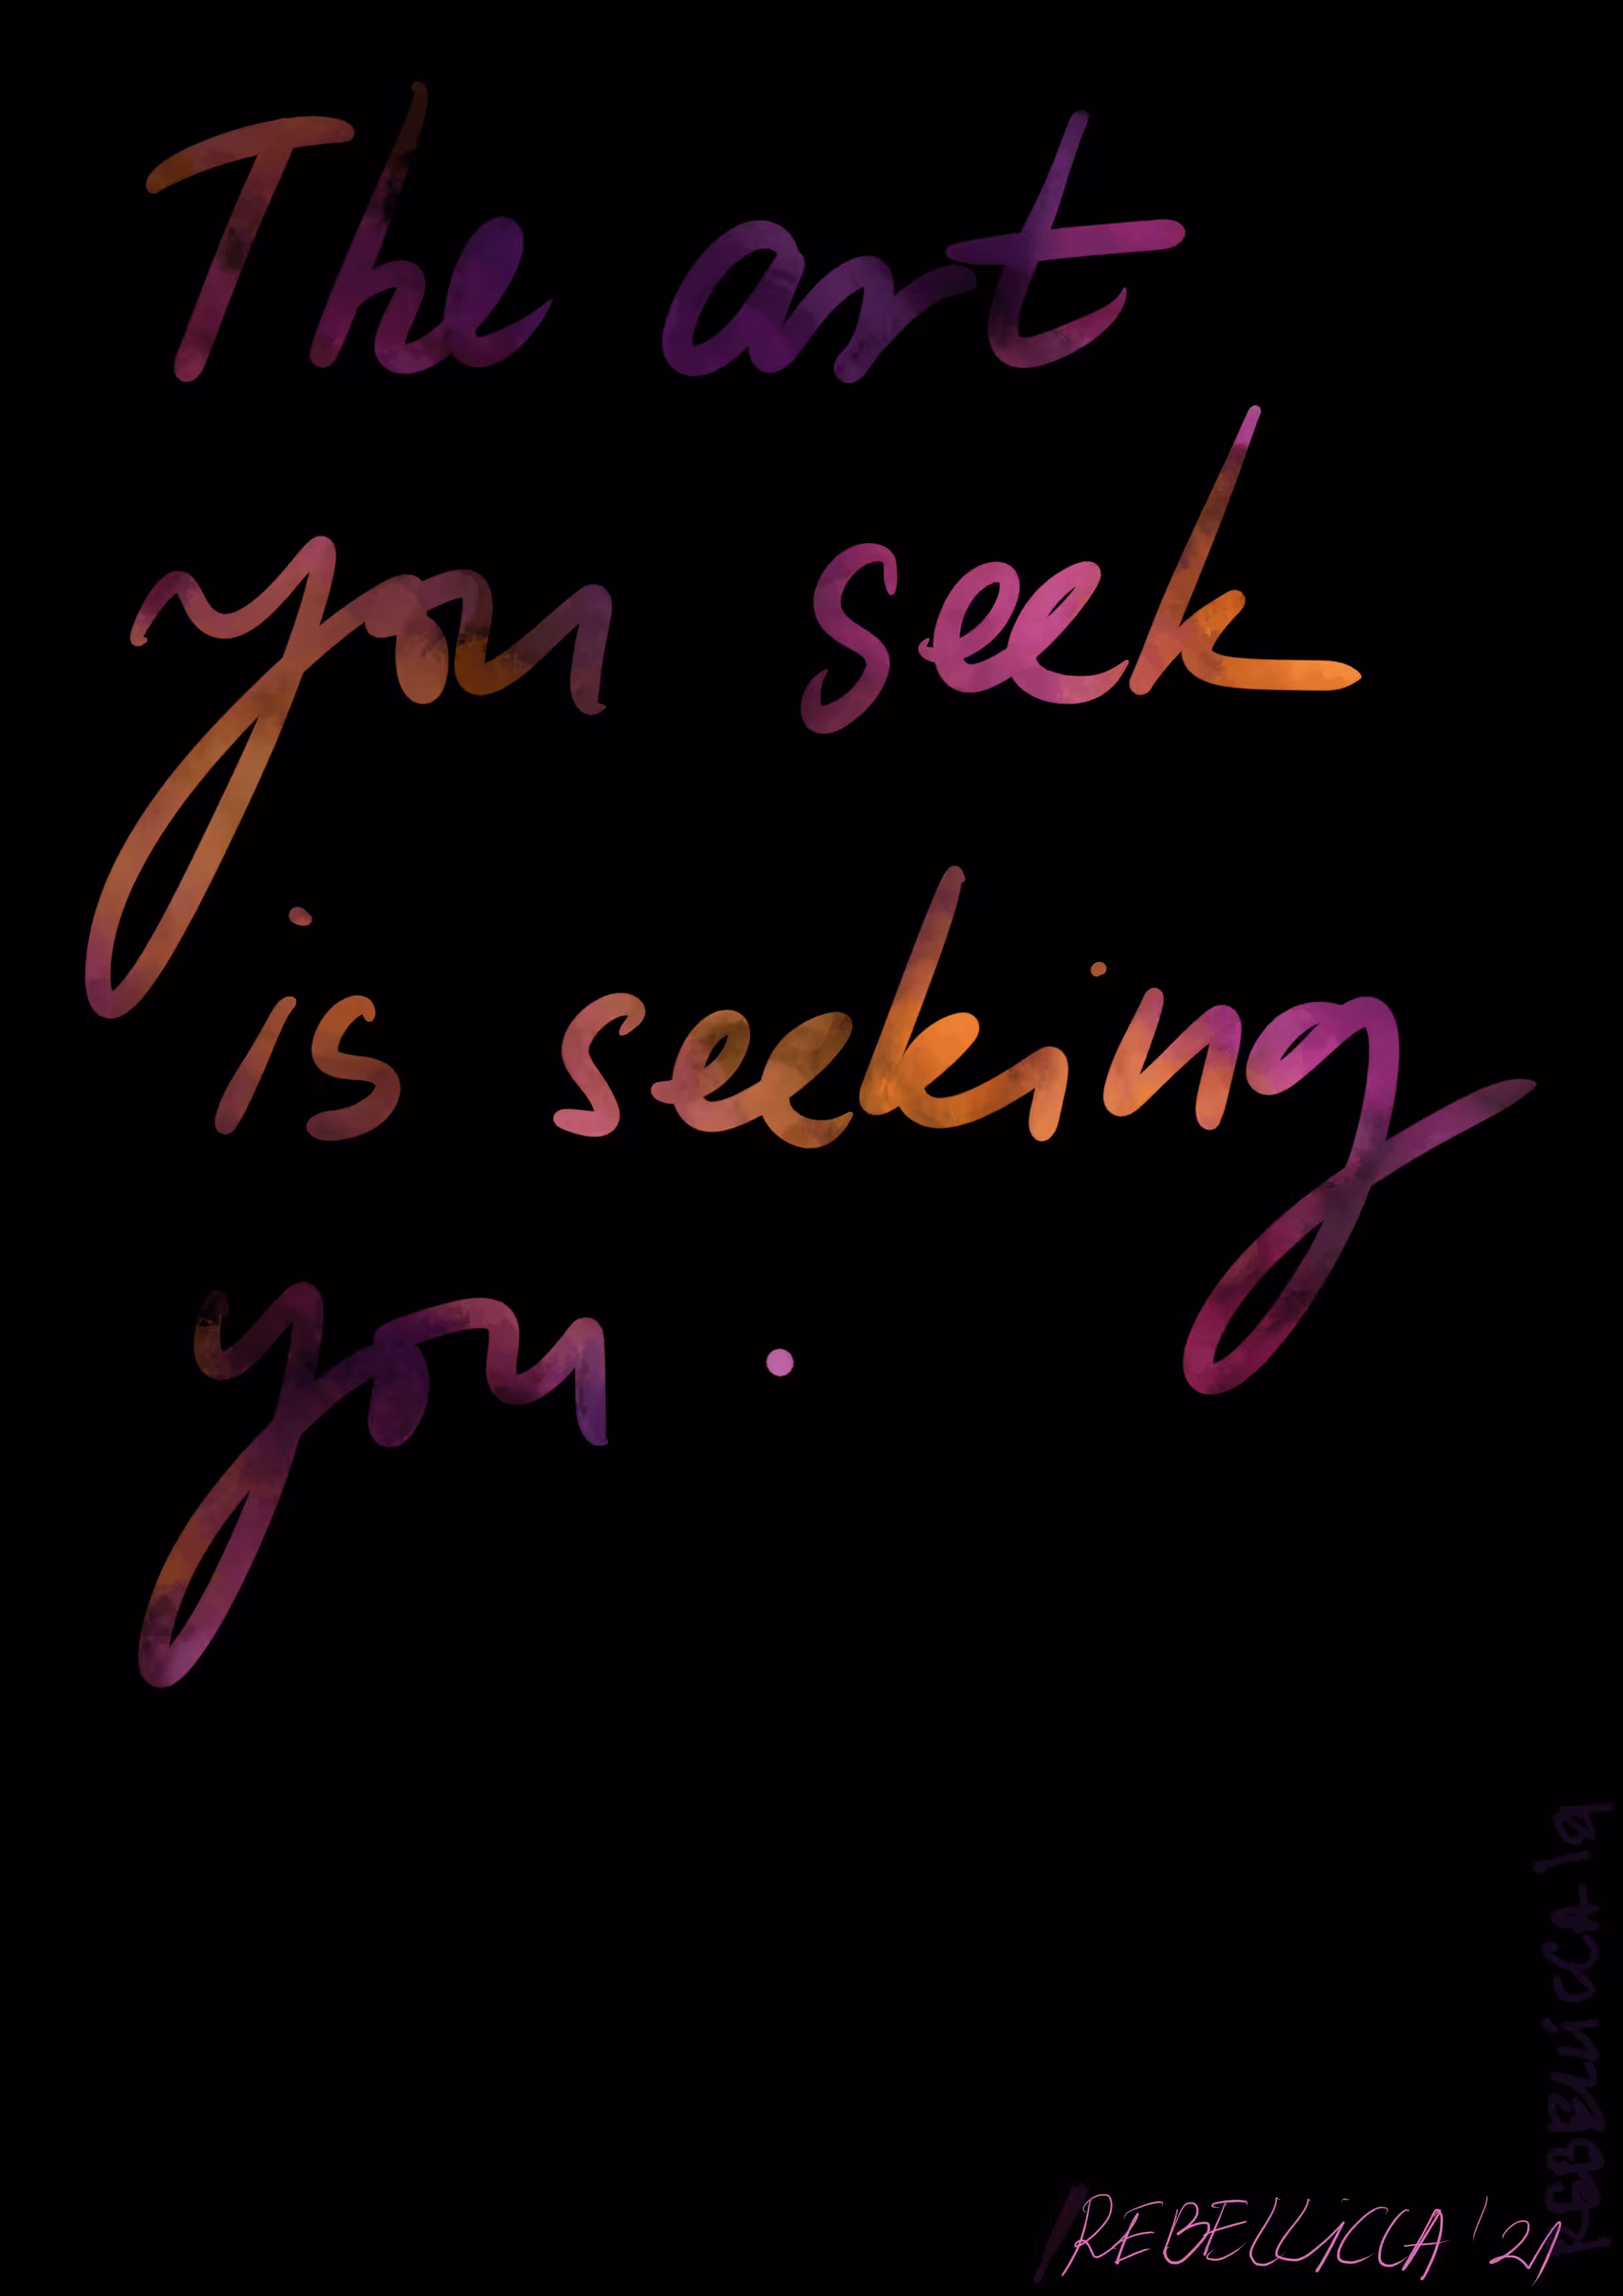 The art
you seek
is seeking
you .
REBELLICCA '21